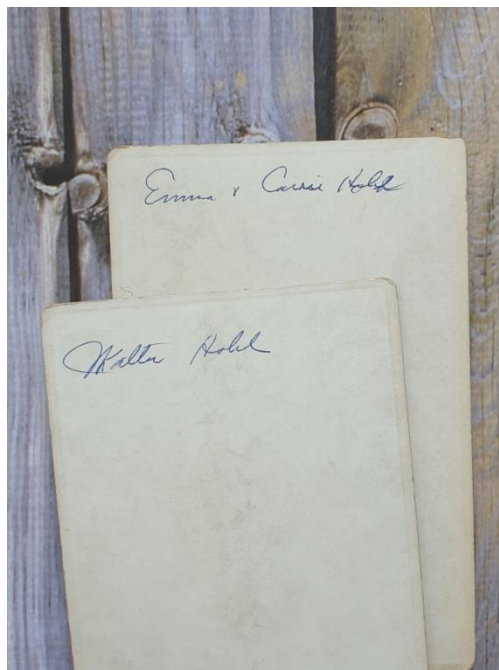 Emma & Carrie Hohl
Walter Hohl